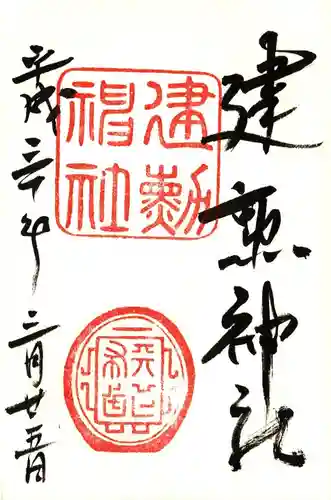 建勲神社
建勲
神社
平成三十年
三月廿五日